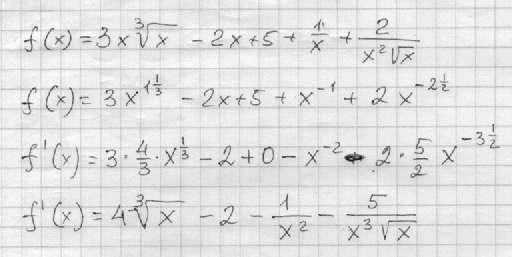 f(x) = 3x∛x - 2x + 5 + 1/x + 2/(x²√x)
f(x) = 3x^(1 1/3) - 2x + 5 + x^(-1) + 2x^(-2 1/2)
f'(x) = 3·4/3·x^(1/3) - 2 + 0 - x^(-2) - 2·5/2 x^(-3 1/2)
f'(x) = 4∛x - 2 - 1/x² - 5/(x³√x)